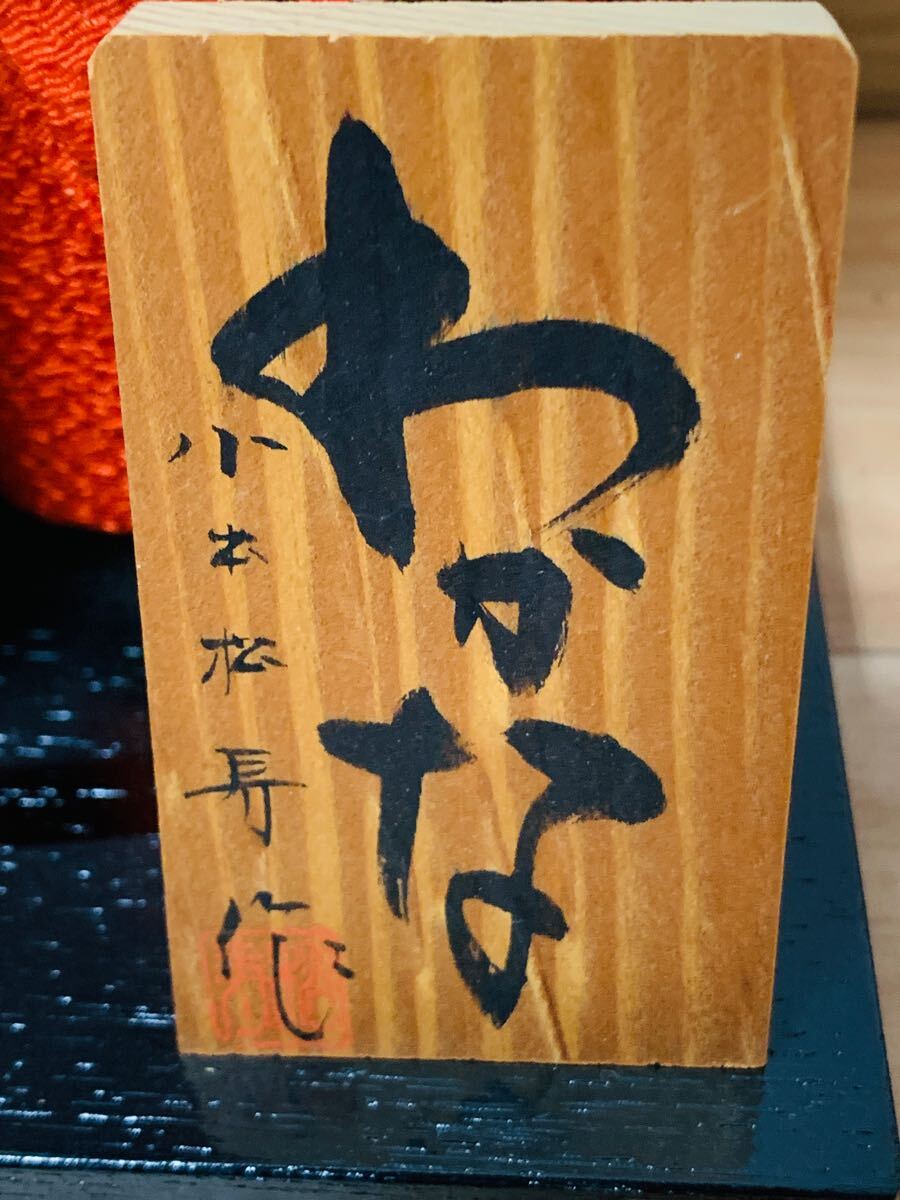 わかな
小本松寿作